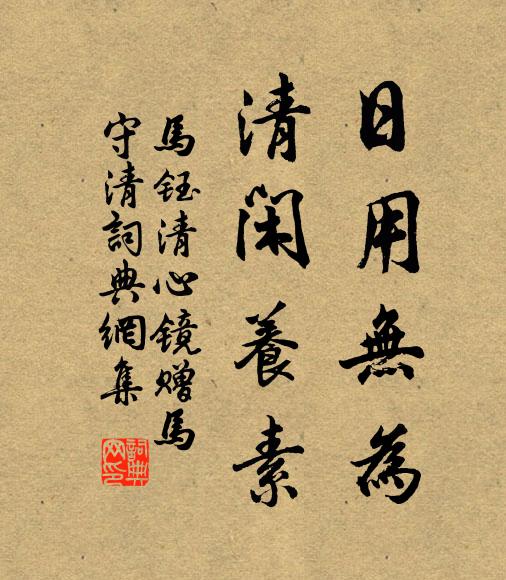 日用無為
清閑養素
馬鈺清心鏡贈馬
守清詞典網集
詞典网印